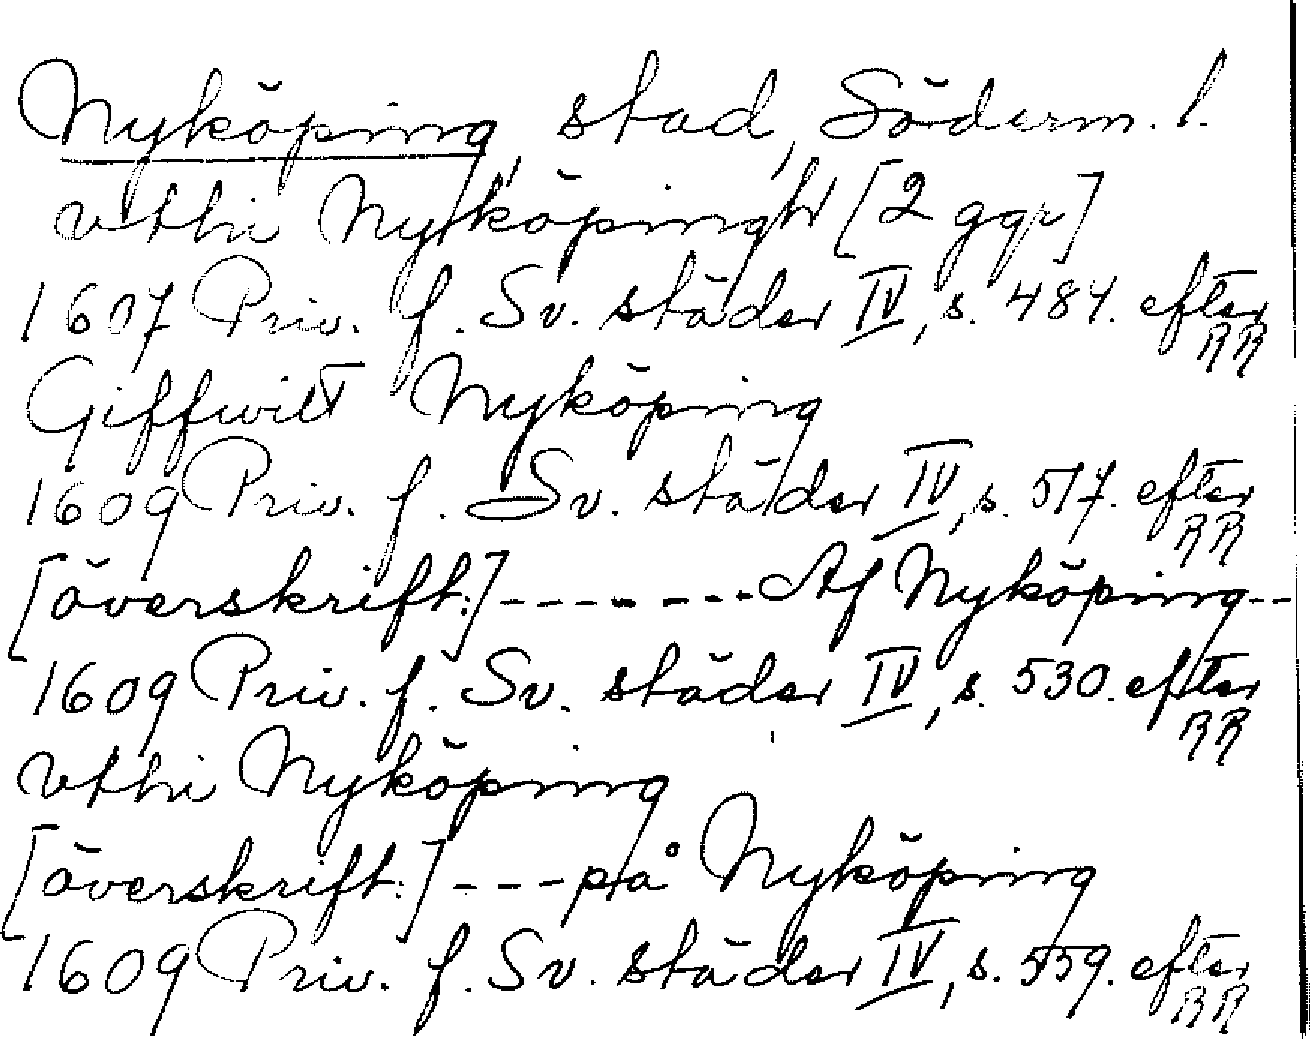 Nyköping, stad, Söderm. l.
vthi Nyköpingh [2 ggr]
1607 Priv. f. Sv. städer IV, s. 484. efter RR
Giffwitt Nyköping
1609 Priv. f. Sv. städer IV, s. 517. efter RR
[överskrift:] -------- Af Nyköping --
1609 Priv. f. Sv. städer IV, s. 530. efter RR
vthi Nyköping
[överskrift:] --- på Nyköping
1609 Priv. f. Sv. städer IV, s. 559. efter RR